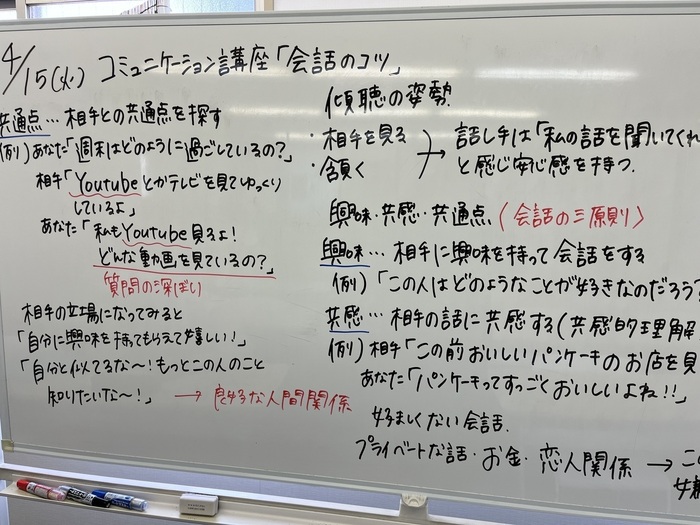 4/15(火) コミュニケーション講座「会話のコツ」
共通点…相手との共通点を探す
例) あなた「週末はどのように過ごしているの?」
相手「Youtubeとかテレビを見てゆっくり
しているよ」
あなた「私もYoutube見るよ!
どんな動画を見ているの?」
質問の深ばい
相手の立場になってみると
「自分に興味を持ってもらえて嬉しい!」
「自分と似てるな〜!もっとこの人のこと
知りたいな〜!」 → 良好な人間関係
傾聴の姿勢
・相手を見る
・含頁く
→ 話し手は「私の話を聞いてくれ
と感じ安心感を持つ.
興味・共感・共通点 (会話の三原則)
興味…相手に興味を持って会話をする
例)「この人はどのようなことが好きなのだろう?
共感…相手の話に共感する(共感的理解
例) 相手「この前おいしいパンケーキのお店を見
あなた「パンケーキってすっごくおいしいよね!!」
好ましくない会話.
プライベートな話・お金・恋人関係 → こ